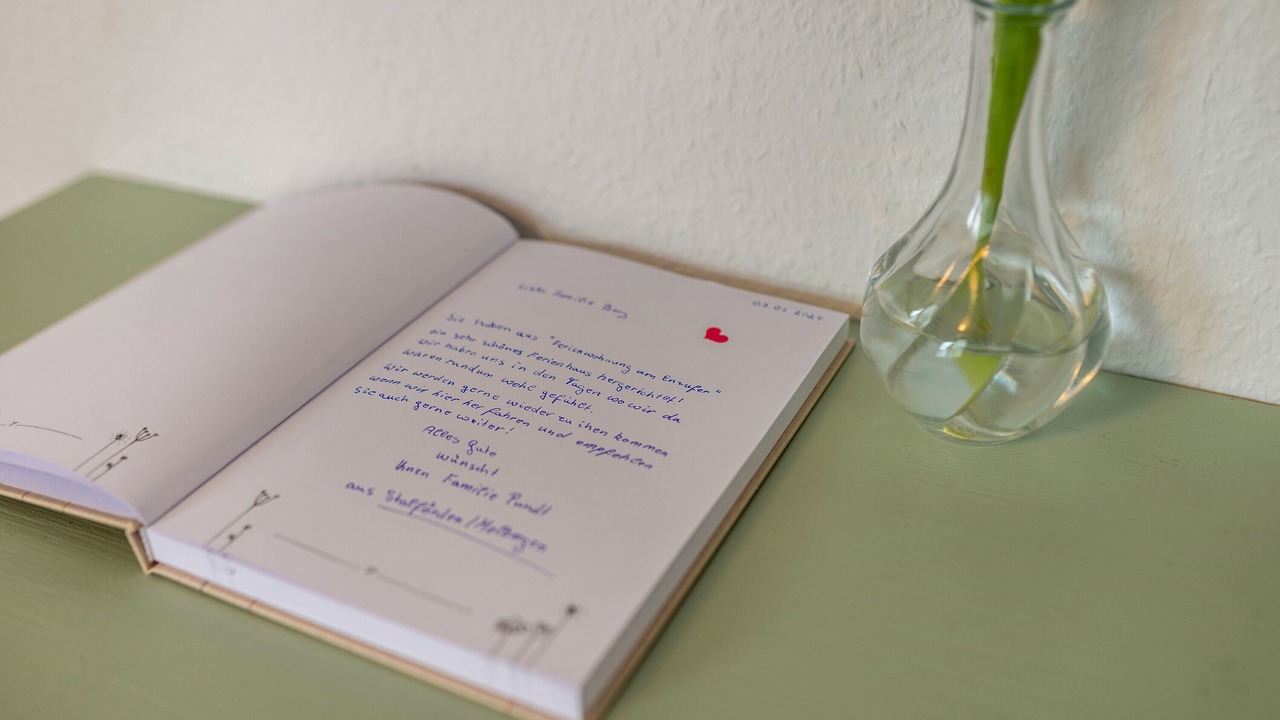 Liebe Familie Berg
Sie haben aus "Ferienwohnung am Enzufer"
ein sehr schönes Ferienhaus hergerichtet!
wir haben uns in den Tagen wo wir da
waren rundum wohl gefühlt.
Wir werden gerne wieder zu ihen kommen
wenn wir hier her fahren und empfehlen
sie auch gerne weiter!
Alles Gute
wünscht
Ihnen Familie Pandl
aus